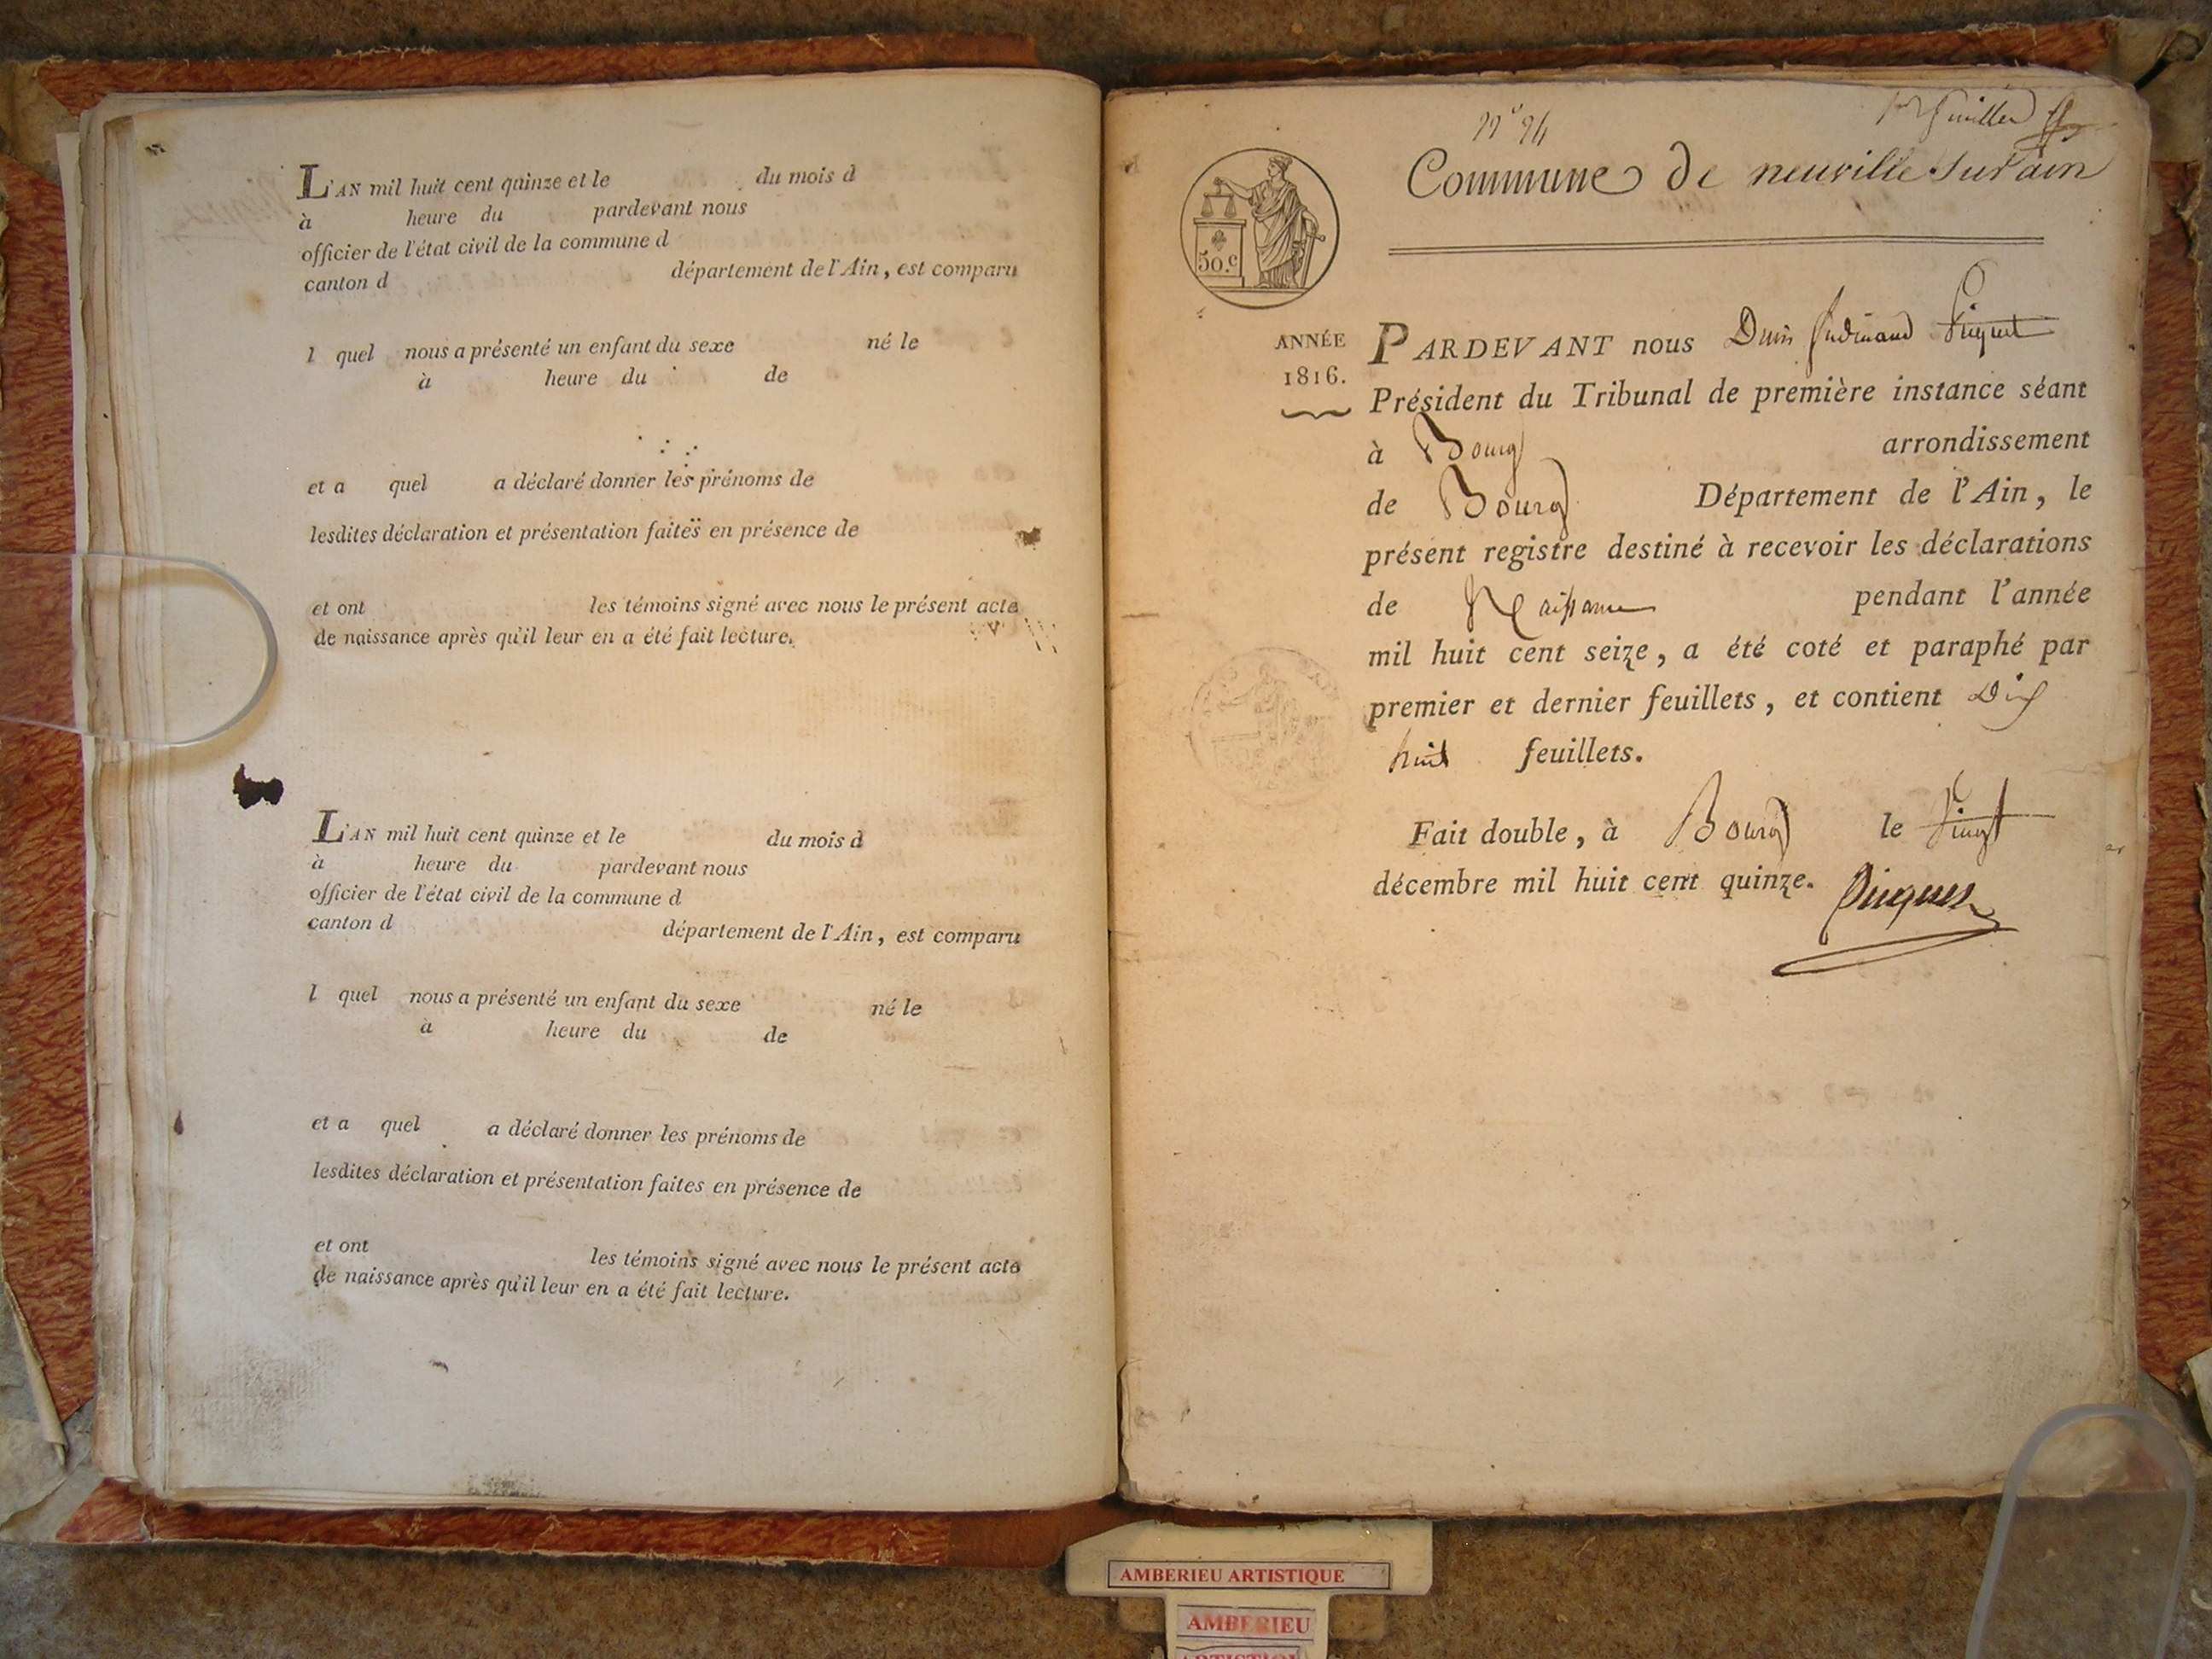 L'AN mil huit cent quinze et le du mois d
à heure du pardevant nous
officier de l'état civil de la commune d
canton d département de l'Ain, est comparu
l quel nous a présenté un enfant du sexe né le
à heure du de
et a quel a déclaré donner les prénoms de
lesdites déclaration et présentation faites en présence de
et ont les témoins signé avec nous le présent acte
de naissance après qu'il leur en a été fait lecture.
L'AN mil huit cent quinze et le du mois d
à heure du pardevant nous
officier de l'état civil de la commune d
canton d département de l'Ain, est comparu
l quel nous a présenté un enfant du sexe né le
à heure du de
et a quel a déclaré donner les prénoms de
lesdites déclaration et présentation faites en présence de
et ont les témoins signé avec nous le présent acte
de naissance après qu'il leur en a été fait lecture.
Commune de neuville sur ain
50.c
ANNÉE
1816.
PARDEVANT nous
Président du Tribunal de première instance séant
à Bourg arrondissement
de Bourg Département de l'Ain, le
présent registre destiné à recevoir les déclarations
de Naissance pendant l'année
mil huit cent seize, a été coté et paraphé par
premier et dernier feuillets, et contient Dix
huit feuillets.
Fait double, à Bourg le Vingt
décembre mil huit cent quinze.
AMBERIEU ARTISTIQUE
AMBERIEU